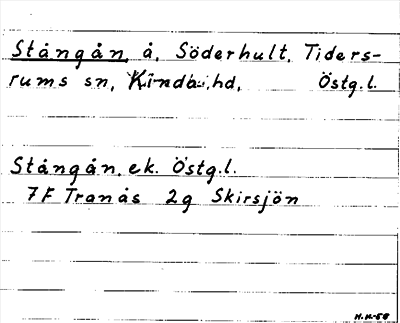 Stångån, å, Söderhult, Tiders-
rums sn, Kinda hd, Östg.l.
Stångån, ek. Östg.l.
7F Tranås 2g Skirsjön
H.H-58